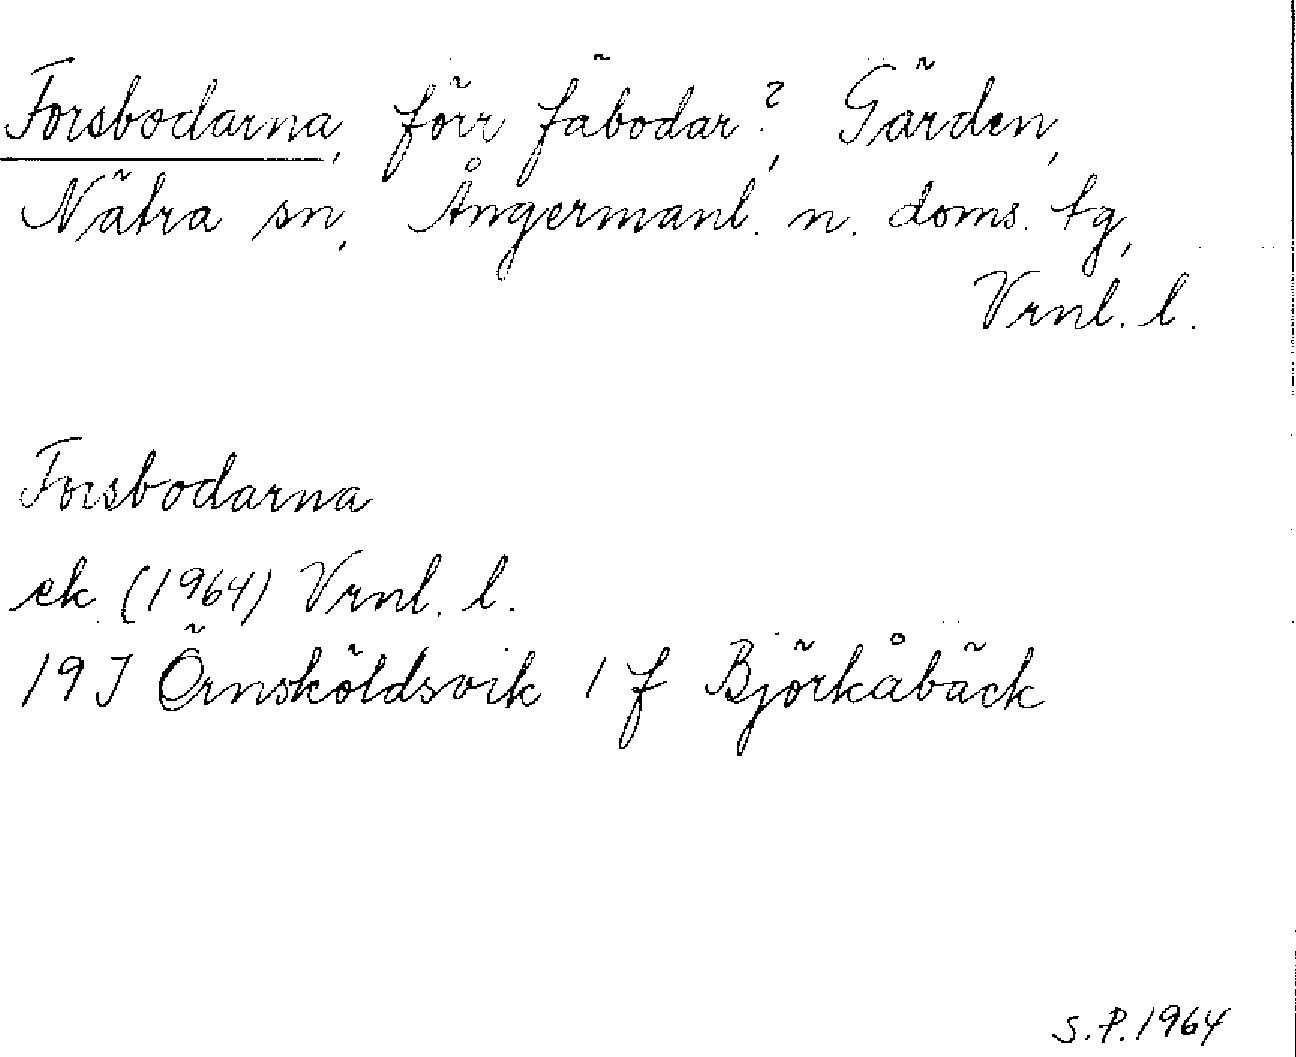 Forsbodarna, förr fäbodar?, Gärden,
Nätra sn, Ångermanl. n. doms. tg,
Vrnl. l.
Forsbodarna
ek. (1964) Vrnl. l.
19J Örnsköldsvik 1 f Björkåbäck
S.P. 1964